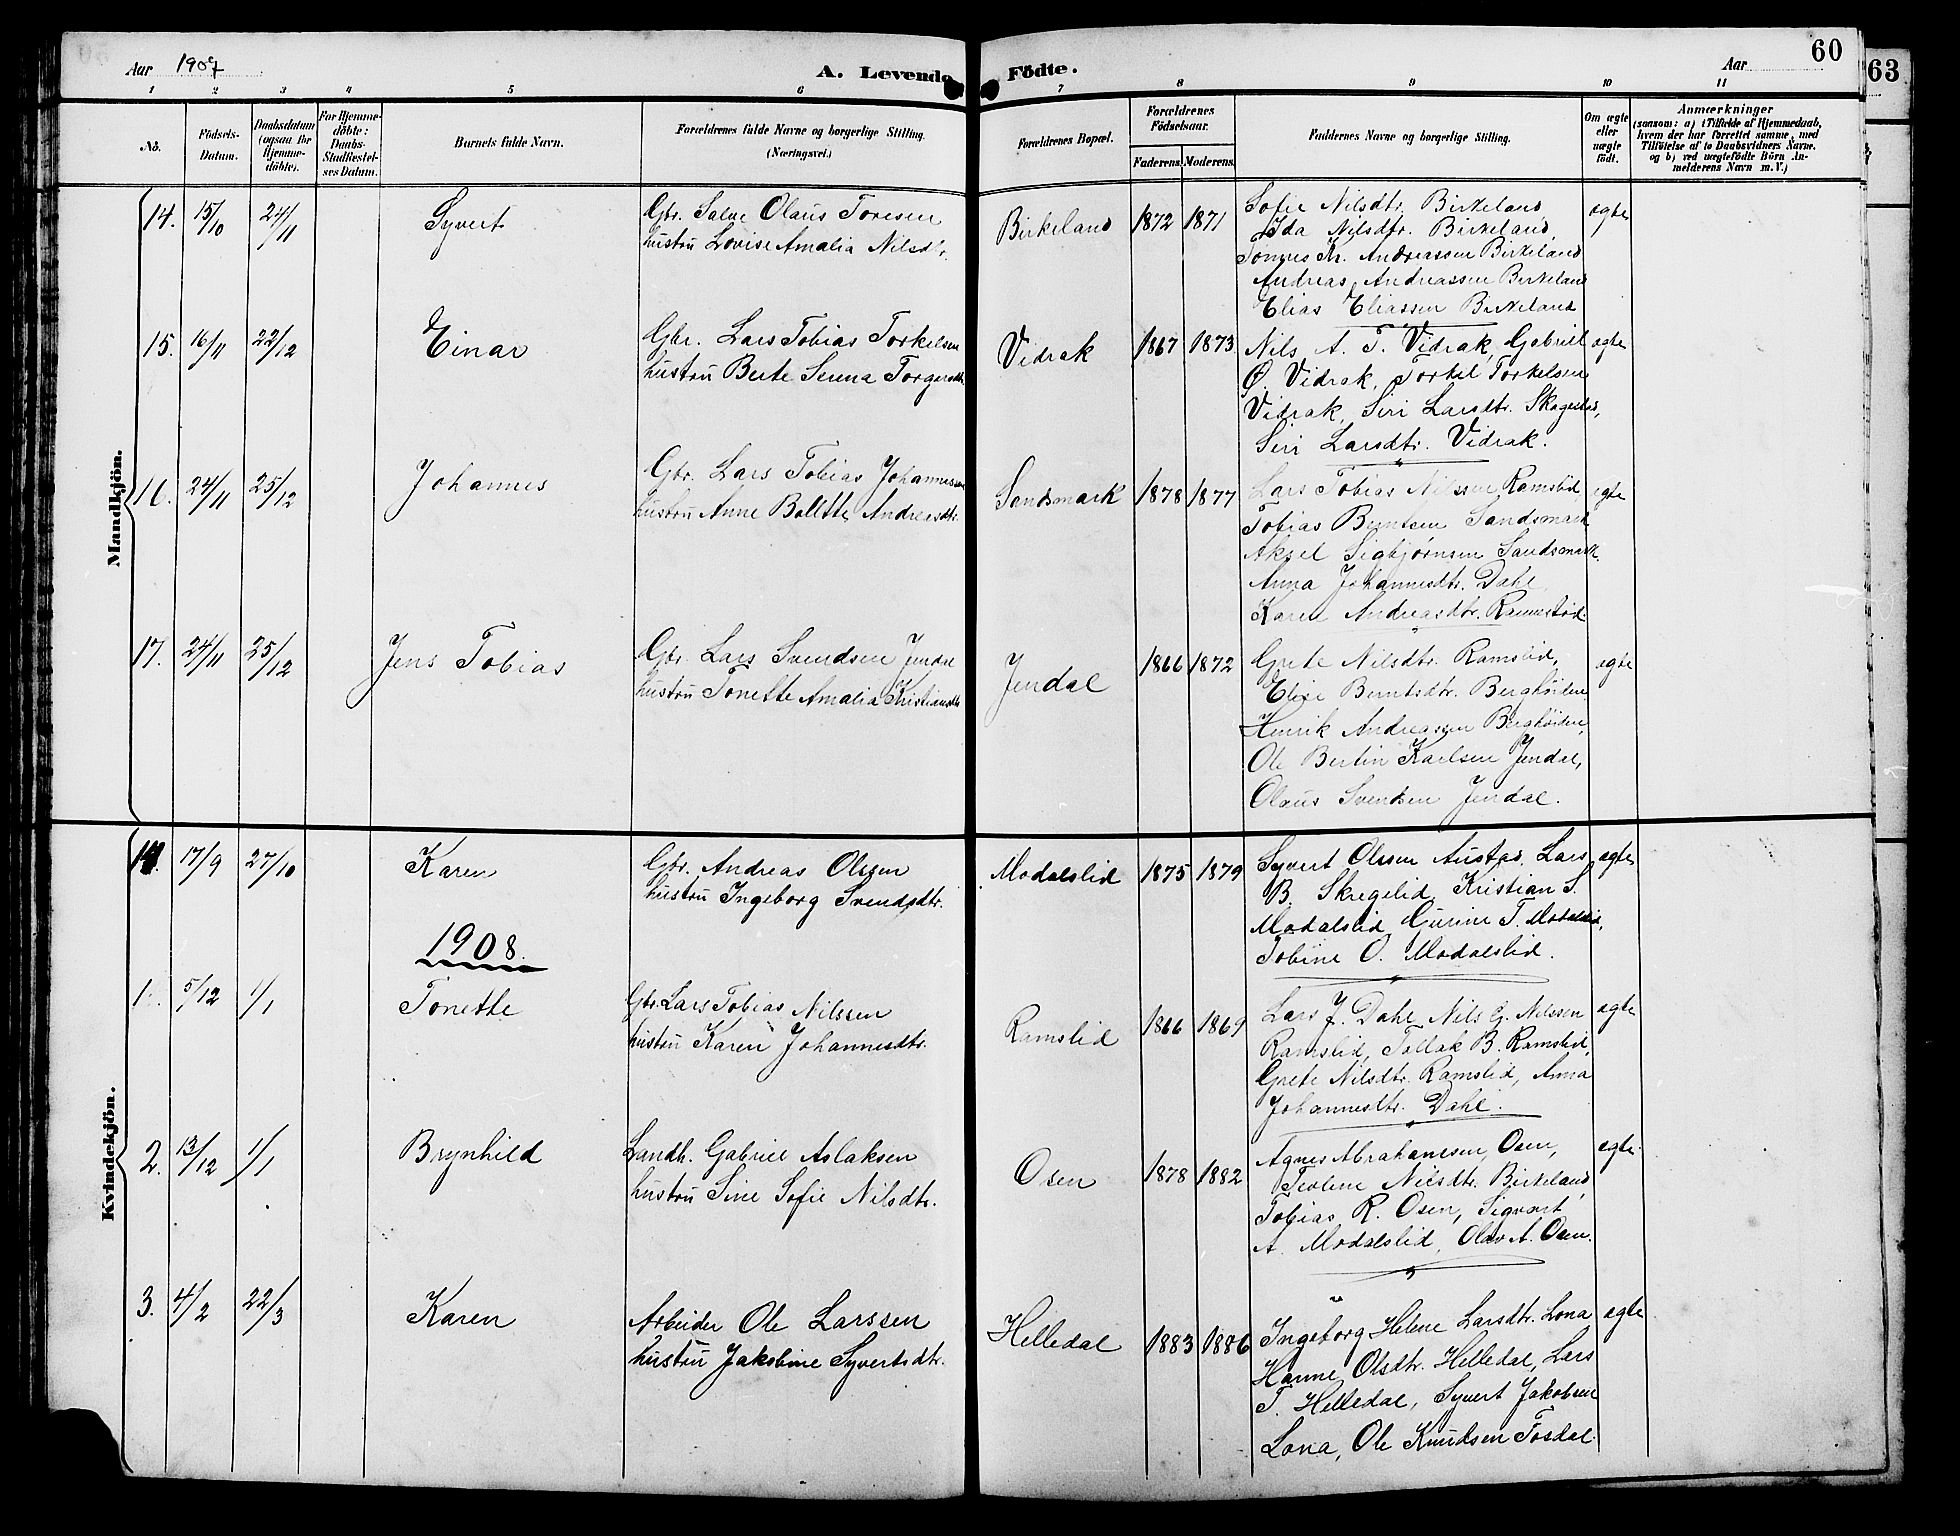 Aar 1907
A. Levende Födte.
Aar
60
63
1 2 3 4 5 6 7 8 9 10 11
No.
Födsels-
Datum.
Daabsdatum
(ogsaa for
Hjemme-
döbte).
For Hjemme-
döbte:
Daabs-
Stadfæstel-
ses Datum.
Barnets fulde Navn.
Forældrenes fulde Navne og borgerlige Stilling.
(Næringsvei.)
Forældrenes Bopæl.
Forældrenes
Födselsaar.
Faderens. Moderens.
Faddernes Navne og borgerlige Stilling.
Om ægte
eller
uægte
födt.
Anmærkninger
(saasom: a) i Tilfælde af Hjemmedaab,
hvem der har forrettet samme, med
Tilföielse af to Daabsvidners Navne,
og b) ved uægtefödte Börn An-
melderens Navn m. V.)
Mandkjön.
14. 15/10 24/11 Syvert
Gbr. Salve Olaus Toresen
hustru Lovise Amalia Nilsdtr.
Birkeland 1872 1871
Sofie Nilsdtr. Birkeland,
Ida Nilsdtr. Birkeland,
Tonnes Kr. Andreassen Birkeland
Andreas Andreassen Birkeland
Elias Eliassen Birkeland
ægte
15. 16/11 22/12 Einar
Gbr. Lars Tobias Torkelsen
hustru Berte Serina Torgersdtr.
Vidrak 1867 1873
Nils A. T. Vidrak, Gabriel
Ø. Vidrak, Torkel Torkelsen
Vidrak, Siri Larsdtr. Skagestad,
Siri Larsdtr. Vidrak.
ægte
16. 24/11 25/12 Johannes
Gbr. Lars Tobias Johannessen
hustru Anne Bolette Andreasdtr.
Sandsmark 1878 1877
Lars Tobias Nilssen Ramslid,
Tobias Berntsen Sandsmark
Aksel Sigbjørnsen Sandsmark.
Anna Johannesdtr. Dahl
Karen Andreasdtr.
ægte
17. 24/11 25/12 Jens Tobias
Gbr. Lars Svendsen Jendal
hustru Tonette Amalia Kristiansdtr.
Jendal 1866 1872
Grete Nilsdtr. Ramslid,
Elise Berntsdtr.
Henrik Andreassen
Ole Bertin Karlsen Jendal,
Olaus Svendsen Jendal.
ægte
Kvindekjön.
14. 17/9 27/10 Karen
Gbr. Andreas Olssen
hustru Ingeborg Svendsdtr.
Modalslid 1875 1879
Syvert Olssen Austad, Lars
B. Skregelid, Kristian S.
Modalslid, Gurine T. Modalslid,
Tobine O. Modalslid.
ægte
1908.
1. 5/12 1/1 Tonette
Gbr. Lars Tobias Nilssen
hustru Karen Johannesdtr.
Ramslid 1866 1869
Lars J. Dahl, Nils G. Nilssen
Ramslid, Tollak B. Ramslid,
Grete Nilsdtr. Ramslid, Anna
Johannesdtr. Dahl.
ægte
2. 13/12 1/1 Brynhild
Landh. Gabriel Aslaksen
hustru Sine Sofie Nilsdtr.
Osen 1878 1882
Agnes Abrahamsen, Osen,
Teoline Nilsdtr. Birkeland,
Tobias R. Osen, Sigvart
A. Modalslid, Olav A. Osen.
ægte.
3. 4/2 22/3 Karen
Arbeider Ole Larssen
hustru Jakobine Syvertsdtr.
Helledal 1883 1886
Ingeborg Helene Larsdtr. Lona
Hanne Olsdtr. Helledal, Lars
T. Helledal, Syvert Jakobsen
Lona, Ole Knudsen Fosdal.
ægte